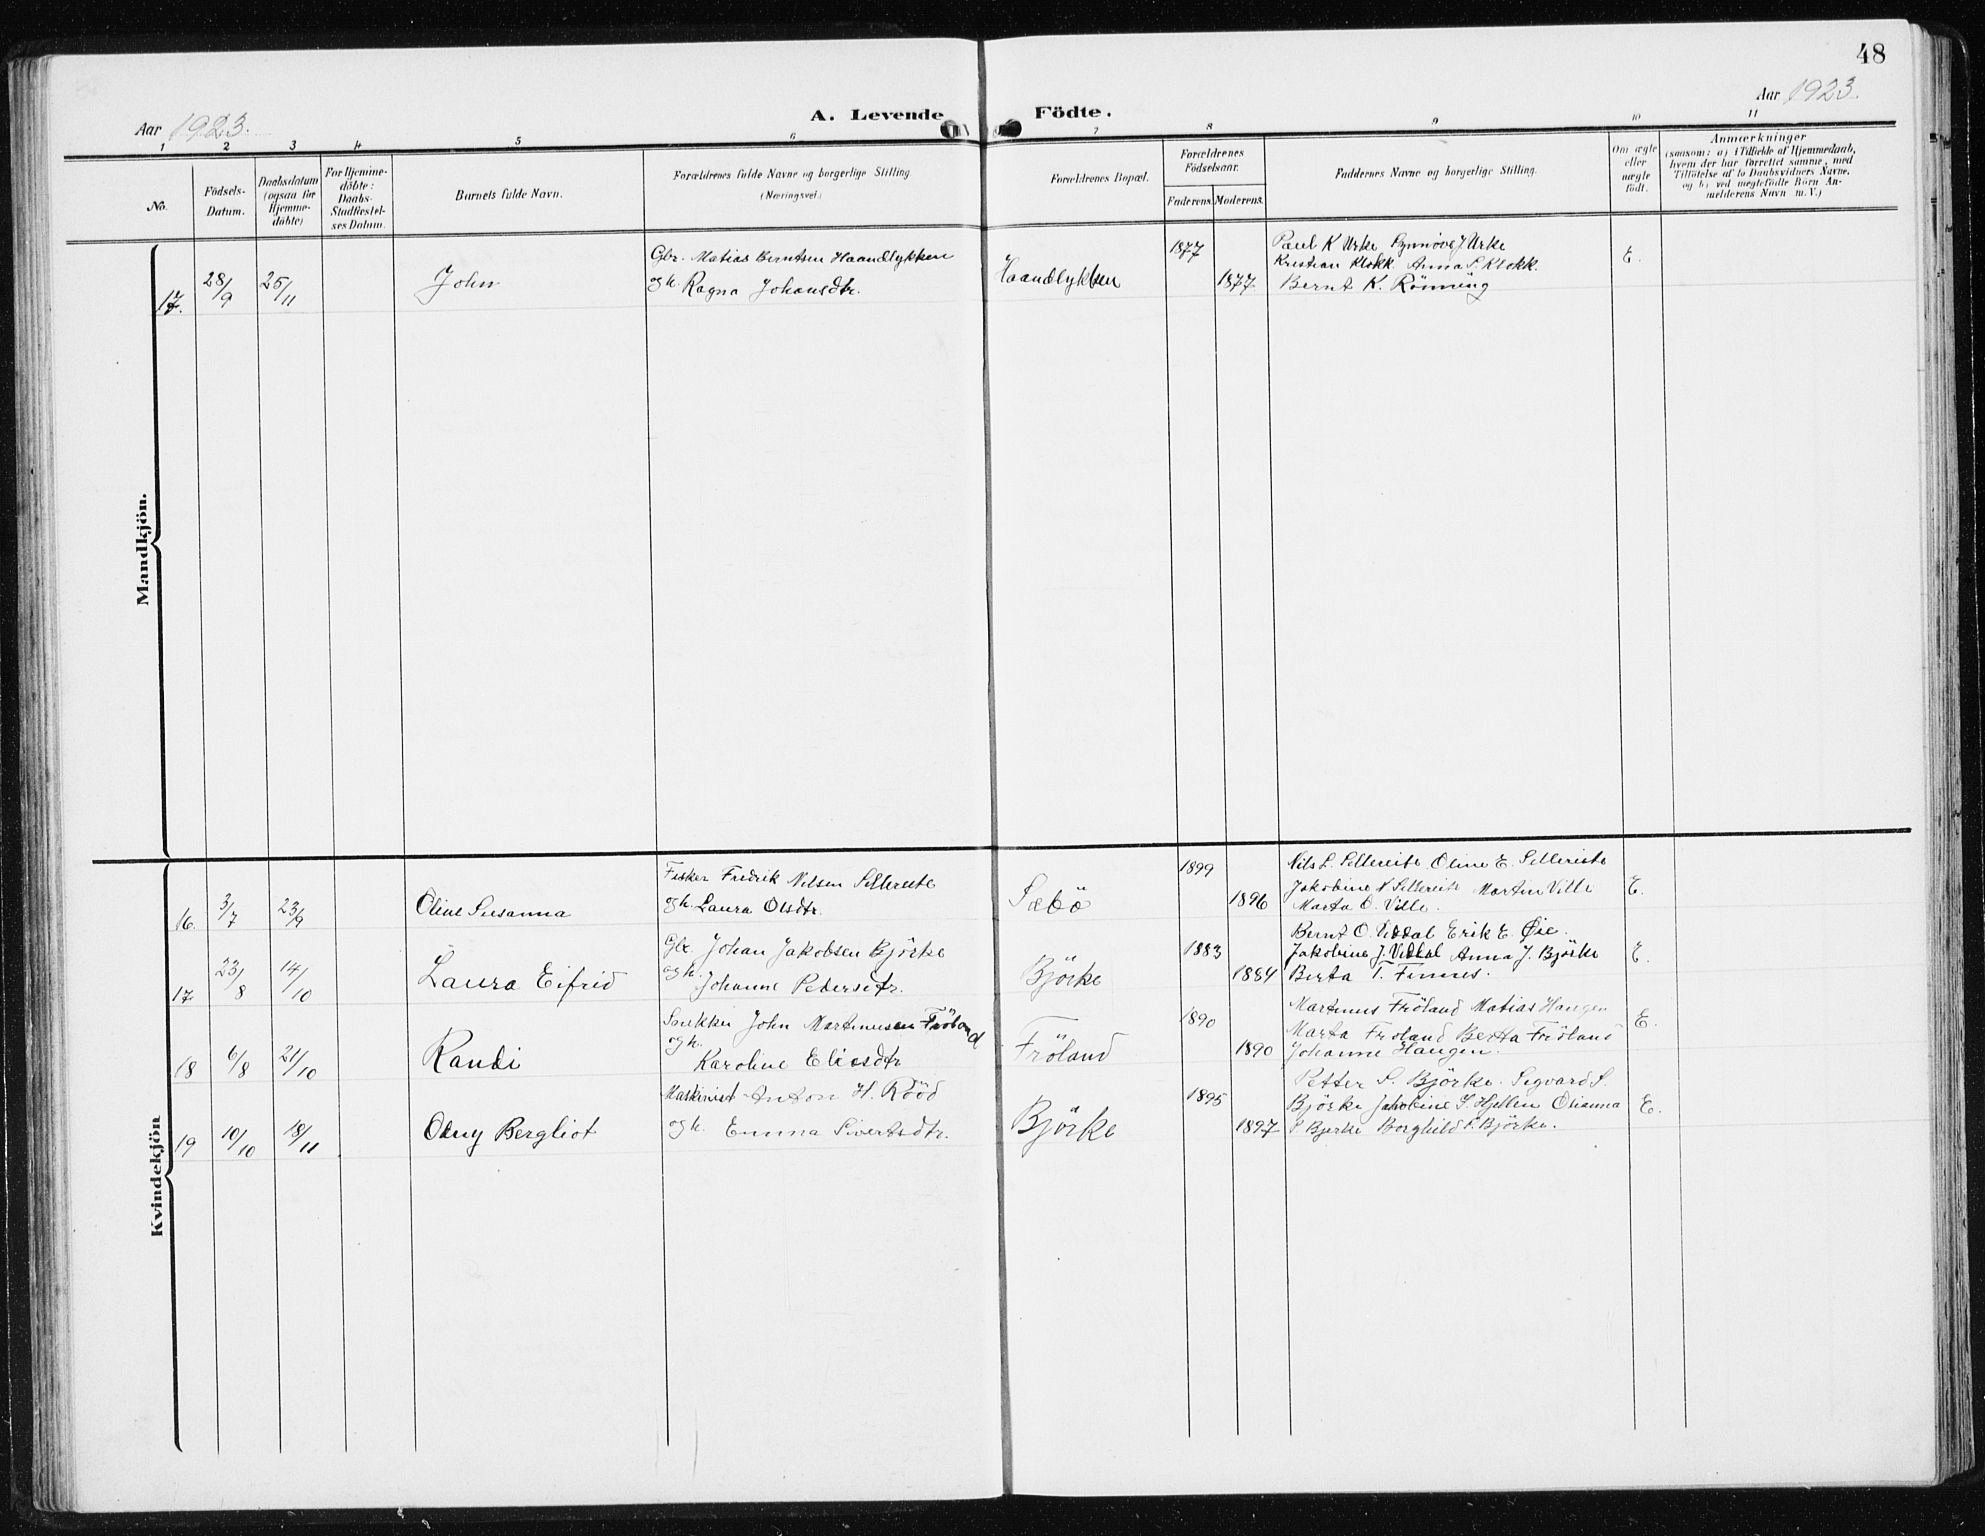 48
Aar 1923.
A. Levende Födte.
Aar 1923.
1 2 3 4 5 6 7 8 9 10 11
No.
Födsels-
Datum.
Daabsdatum
(ogsaa for
Hjemme-
döbte)
For Hjemme-
döbte:
Daabs-
Stadfæstel-
ses Datum.
Barnets fulde Navn.
Forældrenes fulde Navne og borgerlige Stilling
(Næringsvei.)
Forældrenes Bopæl.
Forældrenes
Födselsaar.
Faderens. Moderens.
Faddernes Navne og borgerlige Stilling.
Om ægte
eller
uægte
födt.
Anmærkninger
(saasom: a) i Tilfælde af Hjemmedaab,
hvem der har forrettet samme, med
Tilföielse af to Daabsvidners Navne,
og b) ved uægtefödte Börn An-
melderens Navn m. V.)
Mandkjön.
17. 28/9 25/11 John
Gbr. Matias Berntsen Haandlykken
og h. Ragna Johansdtr.
Haandlykken
1877
1877
Paul K Urke Synnøve J Urke
Kristian Klokk. Anna S. Klokk.
Bernt K. Rönning
E.
Kvindekjön
16. 3/7 23/9 Oline Susanna
Fisker Fredrik Nilsen Sellereite
og h. Laura Olsdtr.
Sæbö
1899
1896
Nils L. Sellereite Oline E. Sellereite
Jakobine N Sellereite Martin Ville
Marta O. Ville.
E.
17. 23/8 14/10 Laura Eifrid
Gbr. Johan Jakobsen Björke
og h. Johanne Pedersdtr.
Björke
1883
1884
Bernt O. Viddal Erik E. Øie.
Jakobine J. Viddal Anna J. Björke
Berta T. Finnes.
E.
18 6/8 21/10 Randi
Snekker John Martinusen Fröland
og h.
Karoline Eliasdtr
Fröland
1890
1890
Martinus Fröland Matias Haugen
Marta Fröland Berta Fröland
Johanne Haugen.
E.
19 10/10 18/11 Odny Bergliot
Maskinist Anton H. Rööd
og h. Emma Sivertsdtr.
Björke
1895
1897
Petter S. Björke. Sigvard S.
Björke Jakobine S. Hjellen Olianna
S Bjørke Borghild P. Björke.
E.